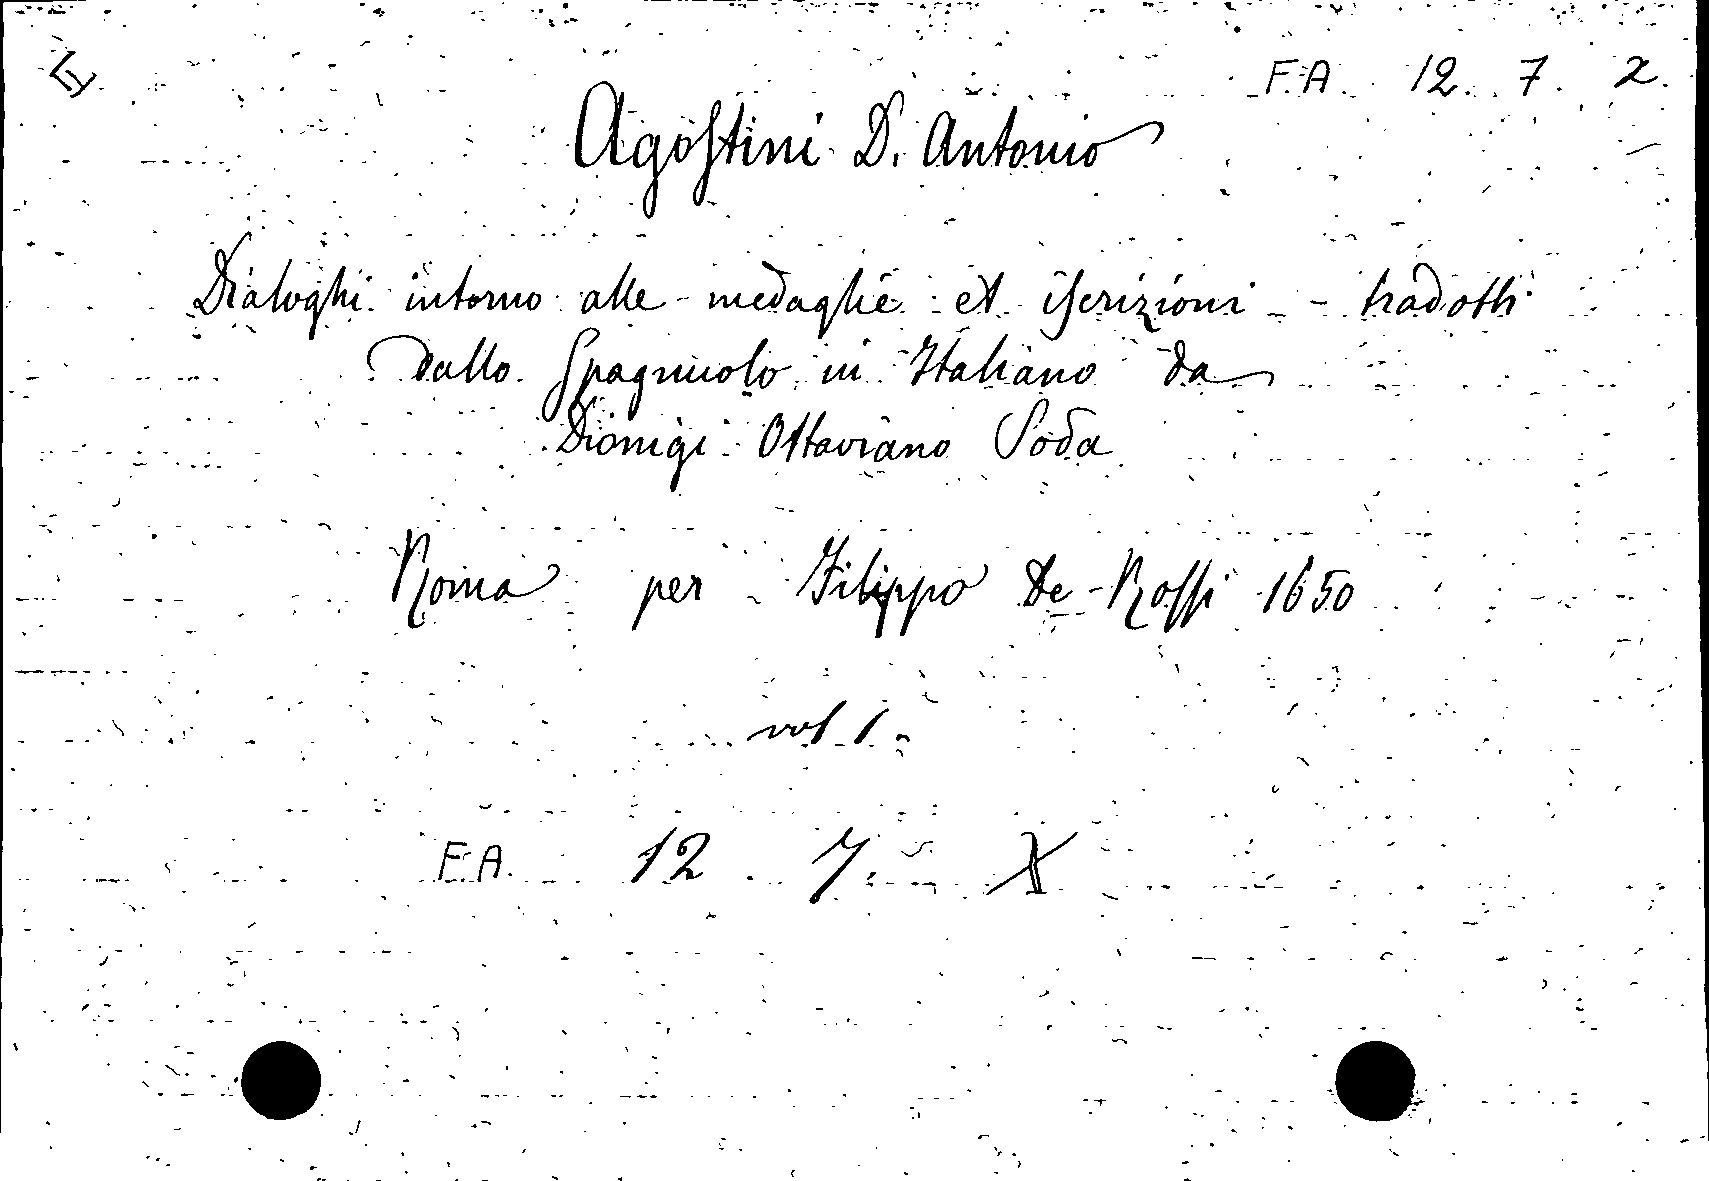 F.A. 12. 7. 2.
Agostini D. Antonio
Dialoghi intorno alle medaglie et iscrizioni - tradotti
dallo Spagnuolo in Italiano da
Dionigi Ottaviano Soda
Roma per Filippo De-Rossi 1650
vol 1.
F.A. 12 7. X